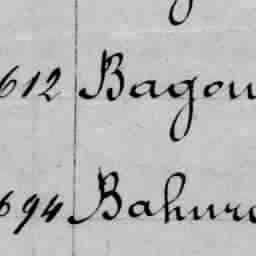 612 Bagou
694 Bahur